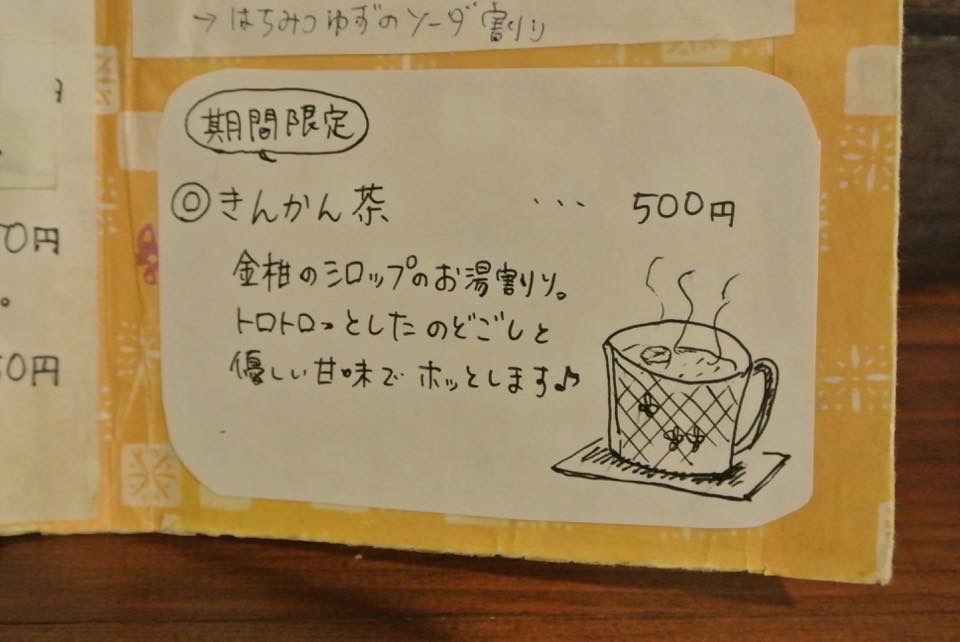 →はちみつゆずのソーダ割り
期間限定
◎きんかん茶 ... 500円
金柑のシロップのお湯割り。
トロトロっとしたのどごしと
優しい甘味でホッとします♪
0円
。
50円